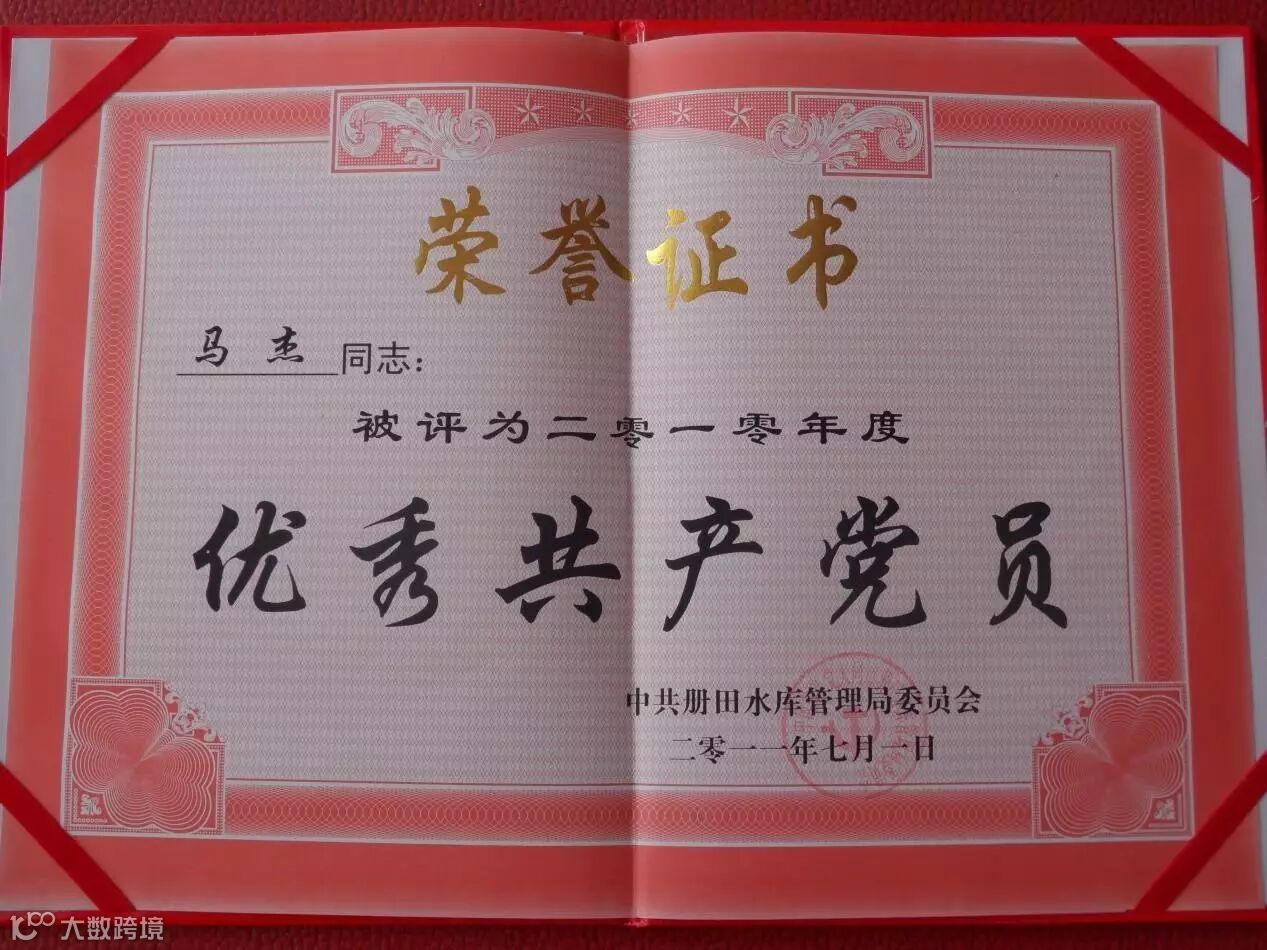 荣誉证书
马杰同志：
被评为二零一零年度
优秀共产党员
中共册田水库管理局委员会
二零一一年七月一日
大数跨境